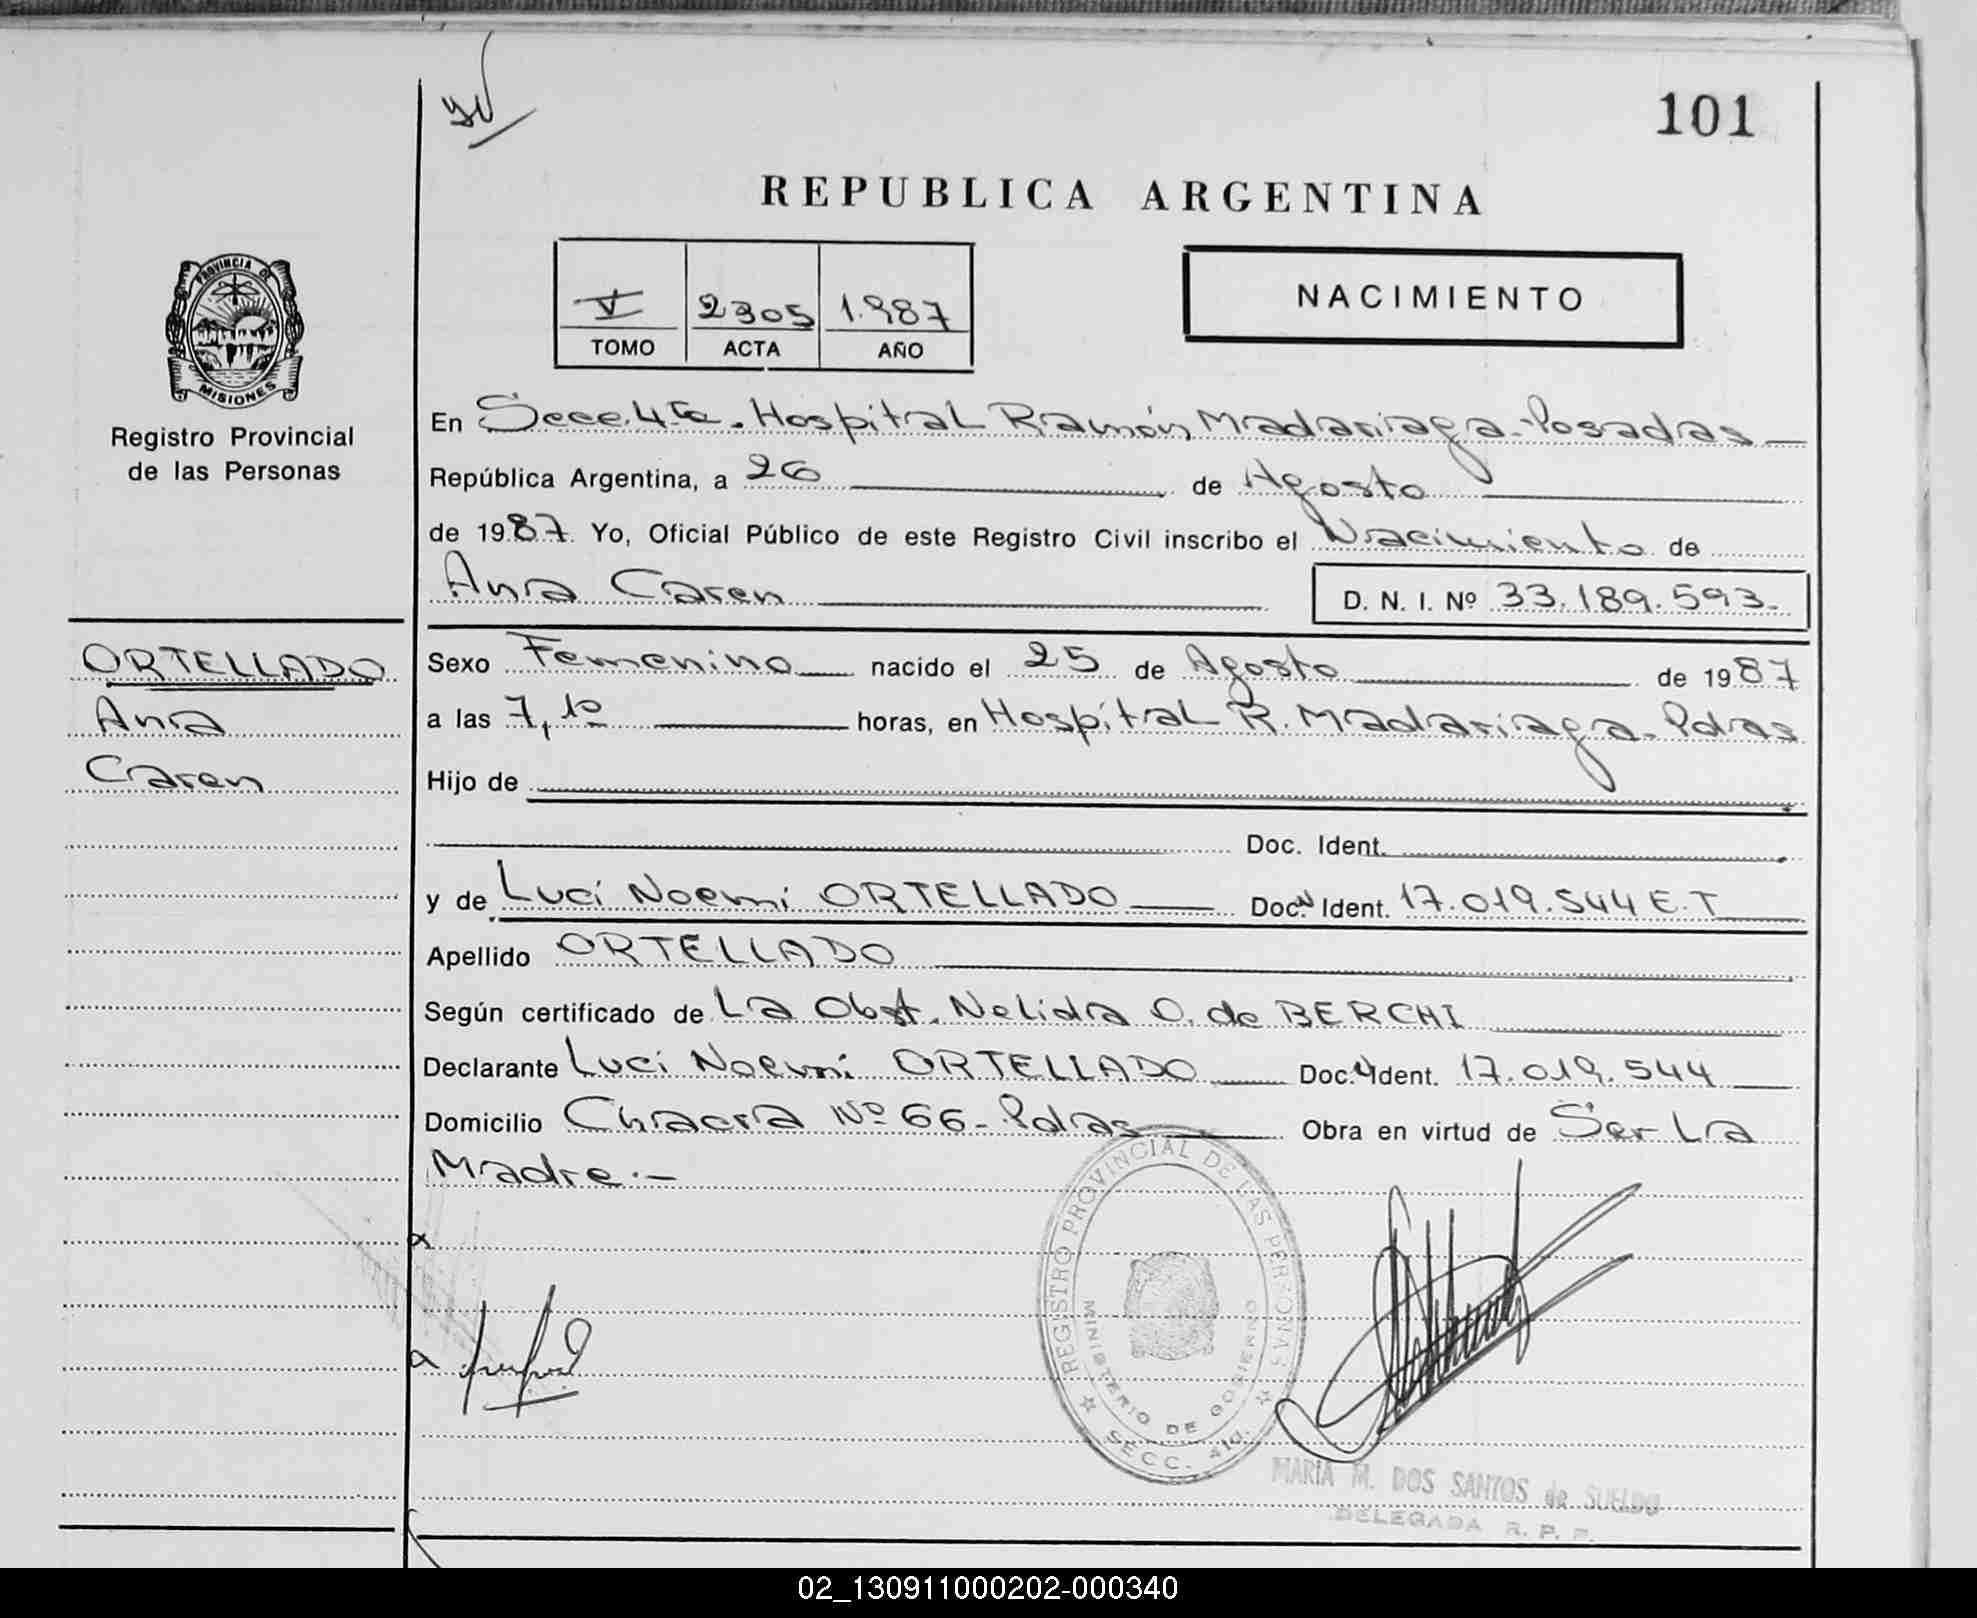 101
REPUBLICA ARGENTINA
V 2305 1.987
TOMO ACTA AÑO
NACIMIENTO
PROVINCIA DE
MISIONES
Registro Provincial
de las Personas
En Secc. 4ta. Hospital Ramón Madariaga - Posadas
República Argentina, a 26 de Agosto
de 1987. Yo, Oficial Público de este Registro Civil inscribo el Nacimiento de
Ana Caren D. N. I. Nº 33.189.593.
ORTELLADO
Ana
Caren
Sexo Femenino nacido el 25 de Agosto de 1987
a las 7,10 horas, en Hospital R. Madariaga - Pdas
Hijo de
Doc. Ident.
y de Luci Noemi ORTELLADO Doc. Ident. 17.019.544 E.T
Apellido ORTELLADO
Según certificado de La Obst. Nelida O. de BERCHI
Declarante Luci Noemi ORTELLADO Doc. Ident. 17.019.544
Domicilio Chacra Nº 66 - Pdas Obra en virtud de Ser La
Madre.-
REGISTRO PROVINCIAL DE LAS PERSONAS
MINISTERIO DE GOBIERNO
SECC. 4ta.
MARIA M. DOS SANTOS de SUELDO
DELEGADA R. P. P.
02_130911000202-000340